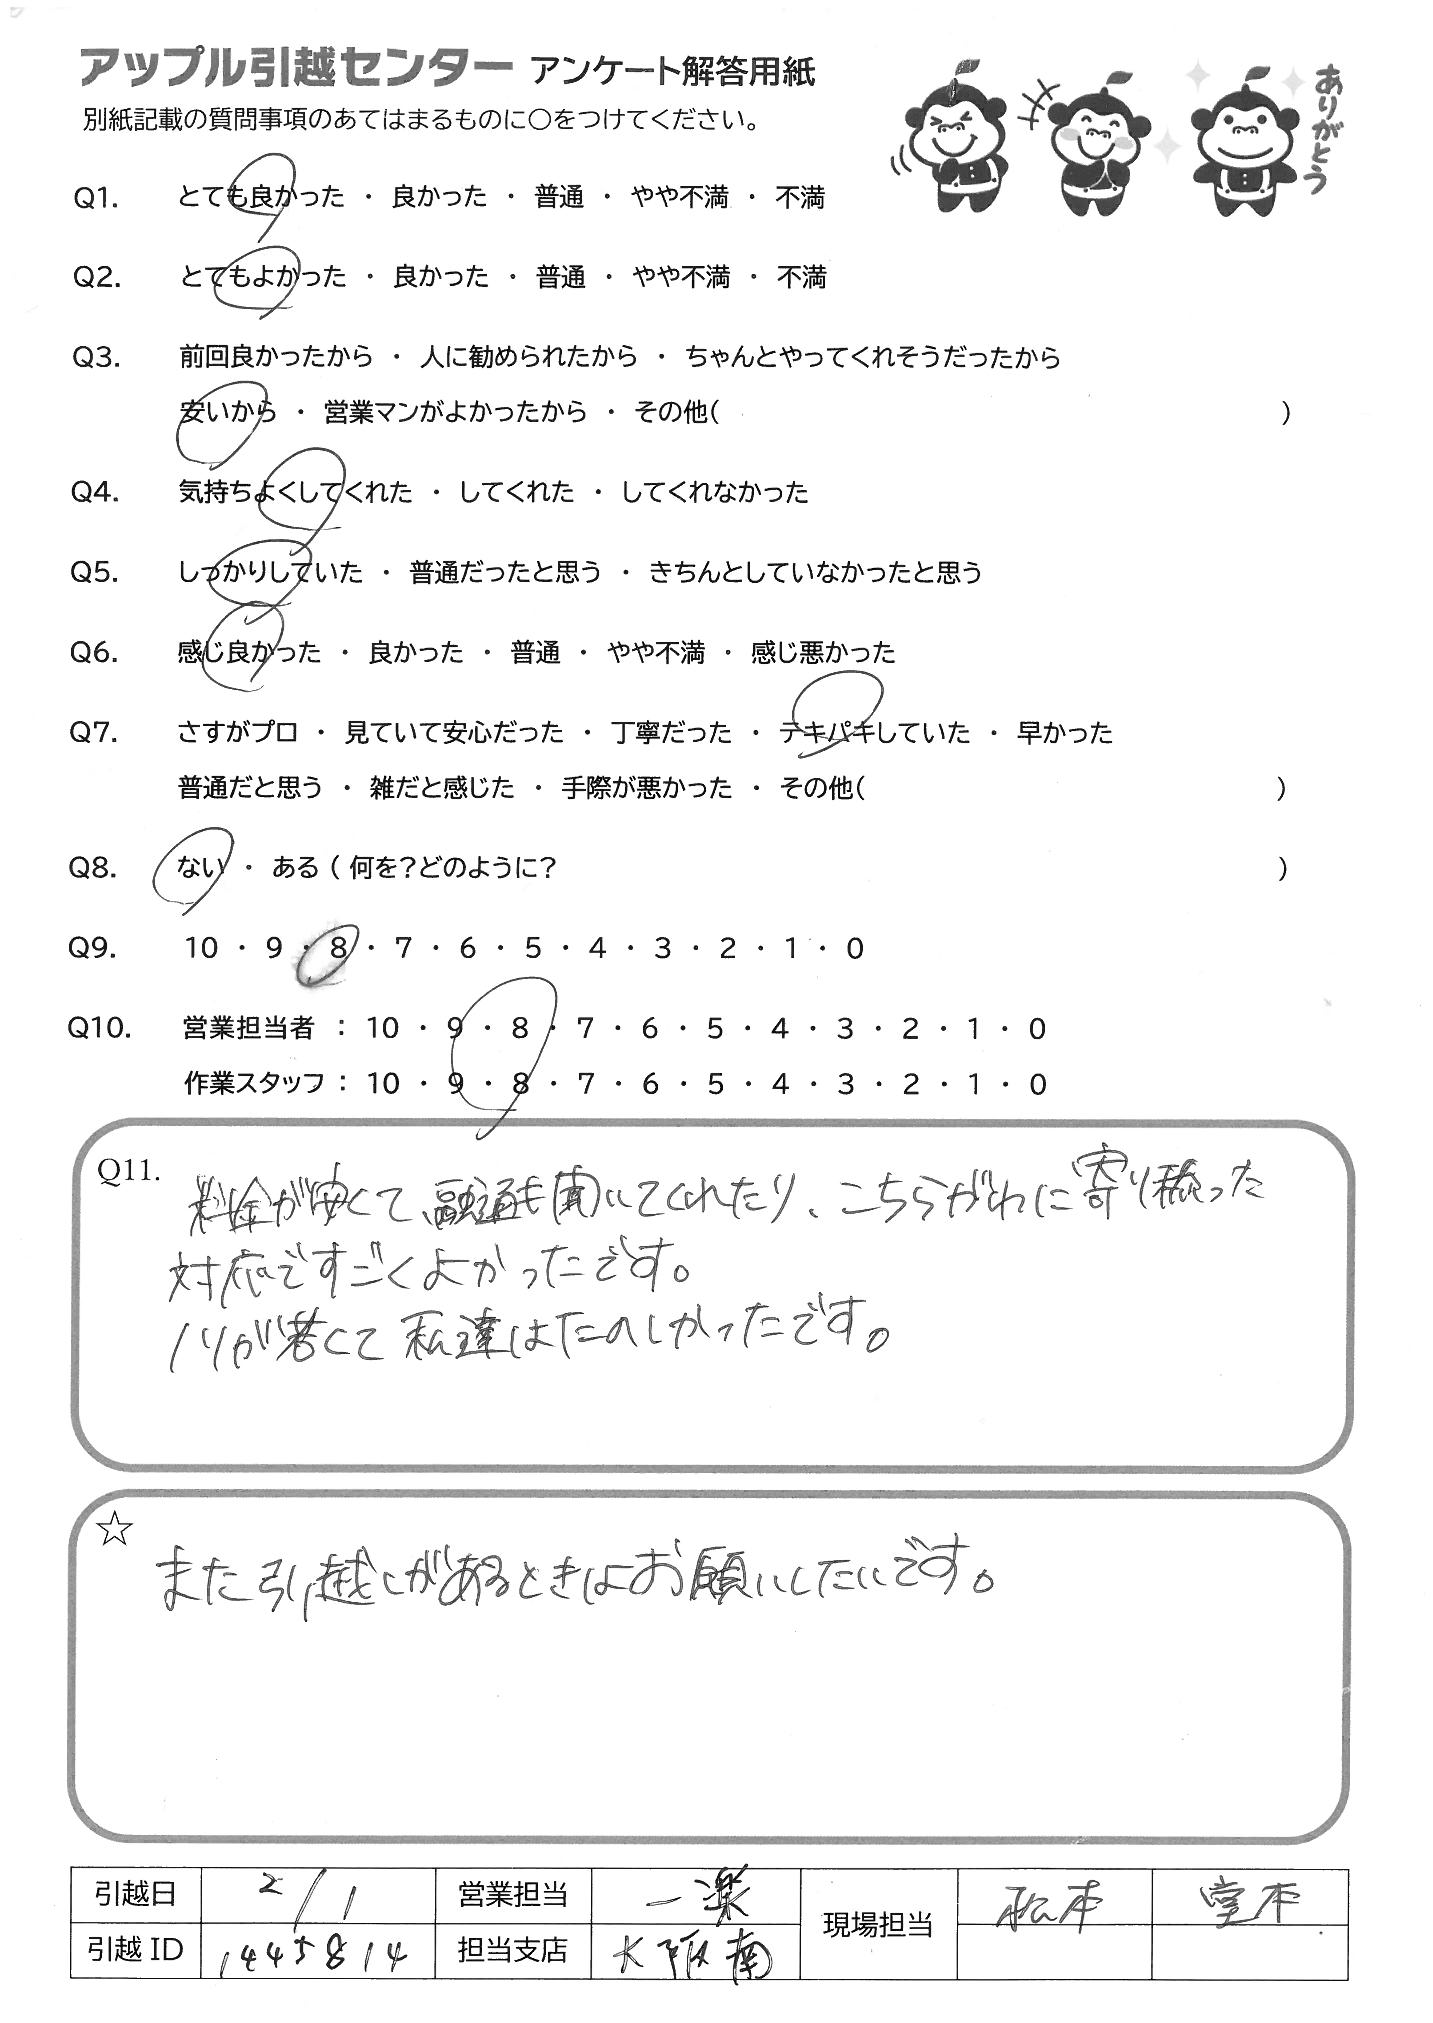 アップル引越センター アンケート解答用紙
ありがとう
別紙記載の質問事項のあてはまるものに○をつけてください。
Q1. とても良かった ・ 良かった ・ 普通 ・ やや不満 ・ 不満
Q2. とてもよかった ・ 良かった ・ 普通 ・ やや不満 ・ 不満
Q3. 前回良かったから ・ 人に勧められたから ・ ちゃんとやってくれそうだったから
安いから ・ 営業マンがよかったから ・ その他( )
Q4. 気持ちよくしてくれた ・ してくれた ・ してくれなかった
Q5. しっかりしていた ・ 普通だったと思う ・ きちんとしていなかったと思う
Q6. 感じ良かった ・ 良かった ・ 普通 ・ やや不満 ・ 感じ悪かった
Q7. さすがプロ ・ 見ていて安心だった ・ 丁寧だった ・ テキパキしていた ・ 早かった
普通だと思う ・ 雑だと感じた ・ 手際が悪かった ・ その他( )
Q8. ない ・ ある ( 何を?どのように? )
Q9. 10 ・ 9 ・ 8 ・ 7 ・ 6 ・ 5 ・ 4 ・ 3 ・ 2 ・ 1 ・ 0
Q10. 営業担当者 : 10 ・ 9 ・ 8 ・ 7 ・ 6 ・ 5 ・ 4 ・ 3 ・ 2 ・ 1 ・ 0
作業スタッフ : 10 ・ 9 ・ 8 ・ 7 ・ 6 ・ 5 ・ 4 ・ 3 ・ 2 ・ 1 ・ 0
Q11. 料金が安くて融通も聞いてくれたり、こちらがわに寄り添った
対応ですごくよかったです。
ノリが若くて私達はたのしかったです。
☆
また引越しがあるときはお願いしたいです。
引越日 2/1 営業担当 一楽 現場担当 松本 堂本
引越ID 1445814 担当支店 大阪南